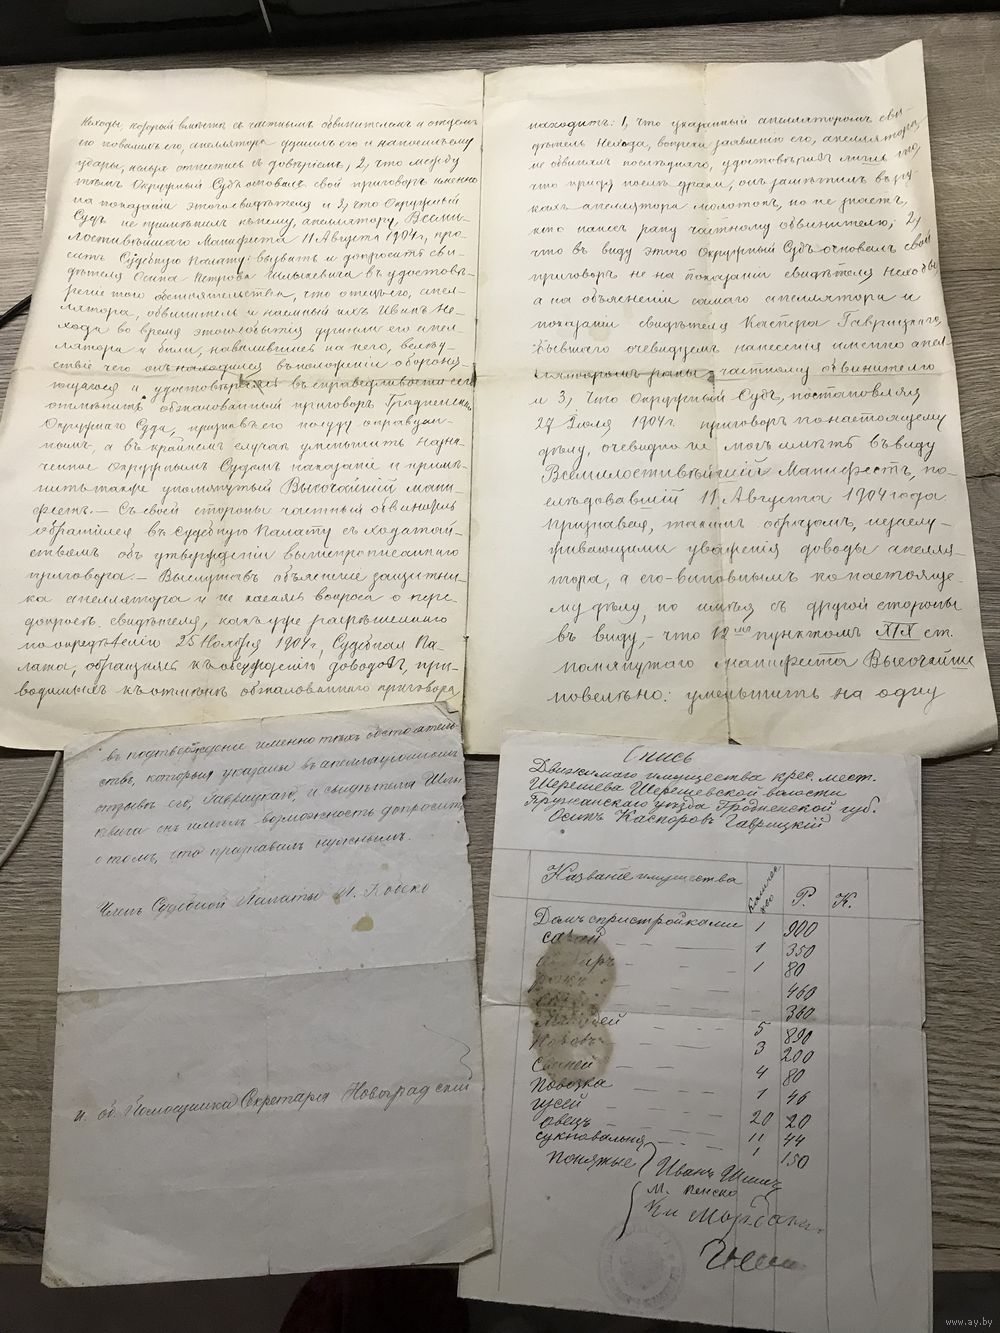 Находы, который вместе съ частнымъ обвинителемъ и отцемъ
его повалилъ его, апеллятора душилъ его и наносилъ ему
удары, нельзя отнестись съ довѣріемъ, 2, что между
тѣмъ Окружный Судъ основалъ свой приговоръ именно
на показаніи этого свидѣтеля и 3, что Окружный
Судъ не примѣнилъ къ нему, апеллятору, Всеми-
лостивѣйшаго Манифеста 11 Августа 1904 г., про-
ситъ Судебную Палату: вызвать и допросить сви-
дѣтеля Осипа Петрова въ удостовѣ-
реніе того обстоятельства, что отецъ его, апел-
лятора, обвинитель и наемный ихъ Иванъ Не-
хода во время этого событія душили его апел-
лятора и били, навалившись на него, вслѣд-
ствіе чего онъ находился въ положеніи обороня-
ющагося и въ справедливости сего
отмѣнить обжалованный приговоръ Гродненскаго
Окружнаго Суда, признавъ его подсуд. оправдан-
нымъ, а въ крайнемъ случаѣ уменьшить назна-
ченное Окружнымъ Судомъ наказаніе и примѣ-
нить также упомянутый Высочайшій мани-
фестъ. — Съ своей стороны частный обвинитель
обратился въ Судебную Палату съ ходатай-
ствомъ объ утвержденіи вышепрописаннаго
приговора. — Выслушавъ объясненіе защитни-
ка апеллятора и не касаясь вопроса о пере-
допросѣ свидѣтеля, какъ уже разрѣшеннаго
по опредѣленію 25 Ноября 1904 г., Судебная Па-
лата, обращаясь къ обсужденію доводовъ, при-
водимыхъ къ отмѣнѣ обжалованнаго приговора,
находитъ: 1, что указанный апелляторомъ сви-
дѣтель Нехода, вопреки заявленію его, апеллятора,
не обвинялъ послѣдняго, удостовѣривъ лишь то,
что придя послѣ драки, онъ замѣтилъ въ ру-
кахъ апеллятора молотокъ, но не знаетъ,
кто нанесъ рану частному обвинителю; 2,
что въ виду этого Окружный Судъ основалъ свой
приговоръ не на показаніи свидѣтеля Неходы,
а на объясненіи самаго апеллятора и
показаніи свидѣтеля Каспера Гаврицкаго,
бывшаго очевидцемъ нанесенія именно апел-
ляторомъ раны частному обвинителю
и 3, что Окружный Судъ, постановляя
27 Іюля 1904 г. приговоръ по настоящему
дѣлу, очевидно не могъ имѣть въ виду
Всемилостивѣйшій Манифестъ, по-
слѣдовавшій 11 Августа 1904 года
Признавая, такимъ образомъ, незаслу-
живающими уваженія доводы апелля-
тора, а его виновнымъ по настояще-
му дѣлу, но имѣя съ другой стороны
въ виду, — что 12 мъ пунктомъ XIX ст.
помянутаго манифеста Высочайше
повелѣно: уменьшить на одну
въ подтвержденіе именно тѣхъ обстоятель-
ствъ, которыя указаны въ апелляціонномъ
отзывѣ его, Гаврицкаго, и свидѣтеля
онъ имѣлъ возможность допросить
о томъ, что признавалъ нужнымъ.
Членъ Судебной Палаты
и. об. Помощника Секретаря Новоградскій
Опись
Движимаго имущества крес. мест.
Шерешева Шерешевской волости
Пружанскаго уѣзда Гродненской губ.
Осипъ Каспоровъ Гаврицкій
Названіе имущества Количество Р. К.
Домъ съ пристройками 1 900
сарай — — 1 350
— — 1 80
— — 460
— 360
5 890
Коровъ — — 3 200
Свиней — — 4 80
Повозка — — 1 46
гусей — — 20 20
овецъ — — 11 44
сукновальня — — 1 150
понятые Иванъ
М. Пенско
www.ay.by